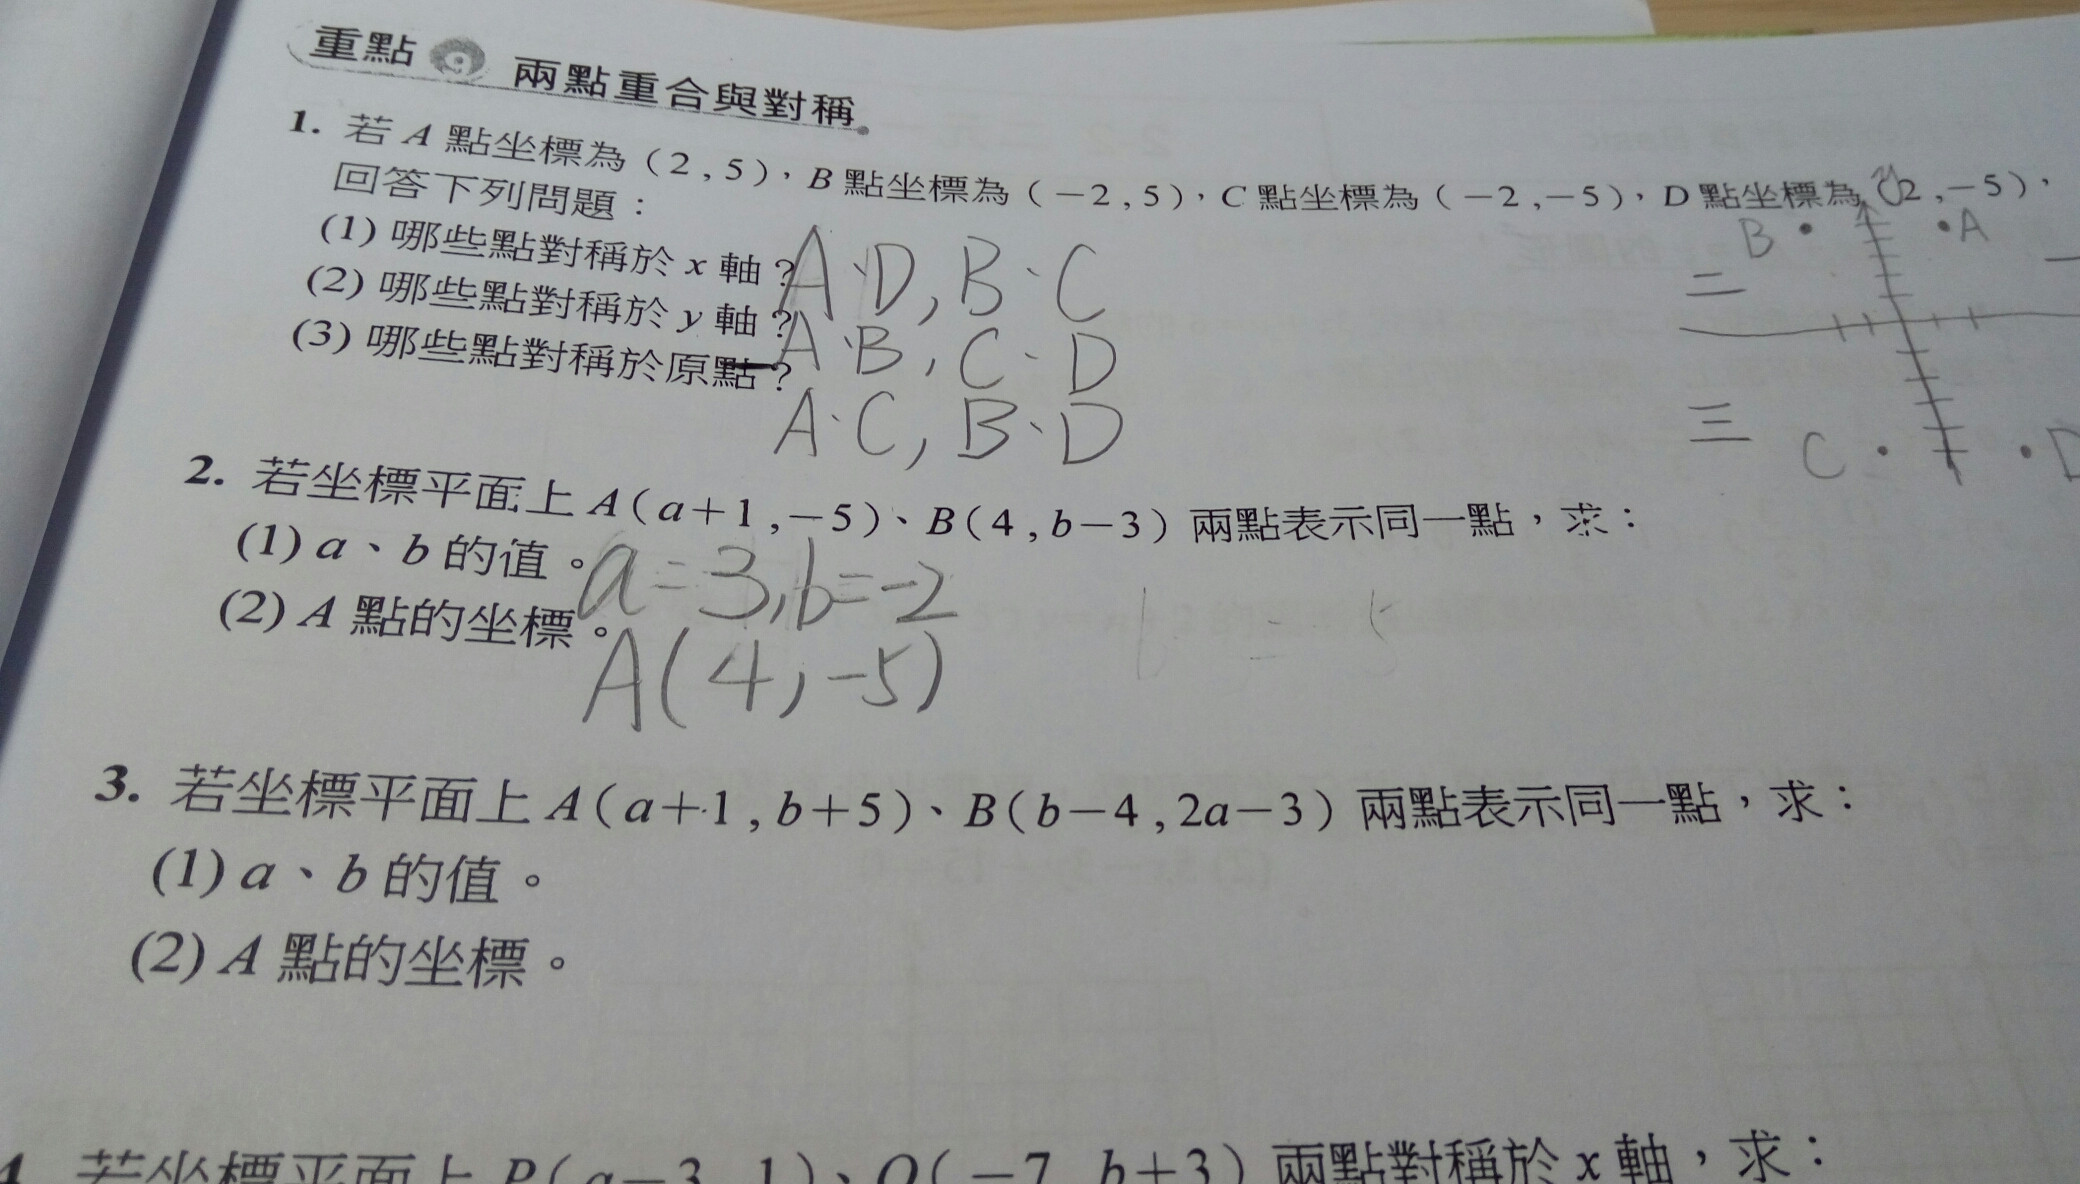 重點 9 兩點重合與對稱
1. 若 A 點坐標為（2 , 5），B 點坐標為（－2 , 5），C 點坐標為（－2 ,－5），D 點坐標為（2 ,－5），
回答下列問題：
(1) 哪些點對稱於 x 軸？ A、D, B、C
(2) 哪些點對稱於 y 軸？ A、B, C、D
(3) 哪些點對稱於原點？ A、C, B、D
B A
二 一
三 C D
2. 若坐標平面上 A（a＋1 ,－5）、B（4 , b－3）兩點表示同一點，求：
(1) a、b 的值。 a=3, b=-2
(2) A 點的坐標。 A(4, -5)
3. 若坐標平面上 A（a＋1 , b＋5）、B（b－4 , 2a－3）兩點表示同一點，求：
(1) a、b 的值。
(2) A 點的坐標。
4. 若坐標平面上 P（a－3 , 1）、Q（－7 , b＋3）兩點對稱於 x 軸，求：